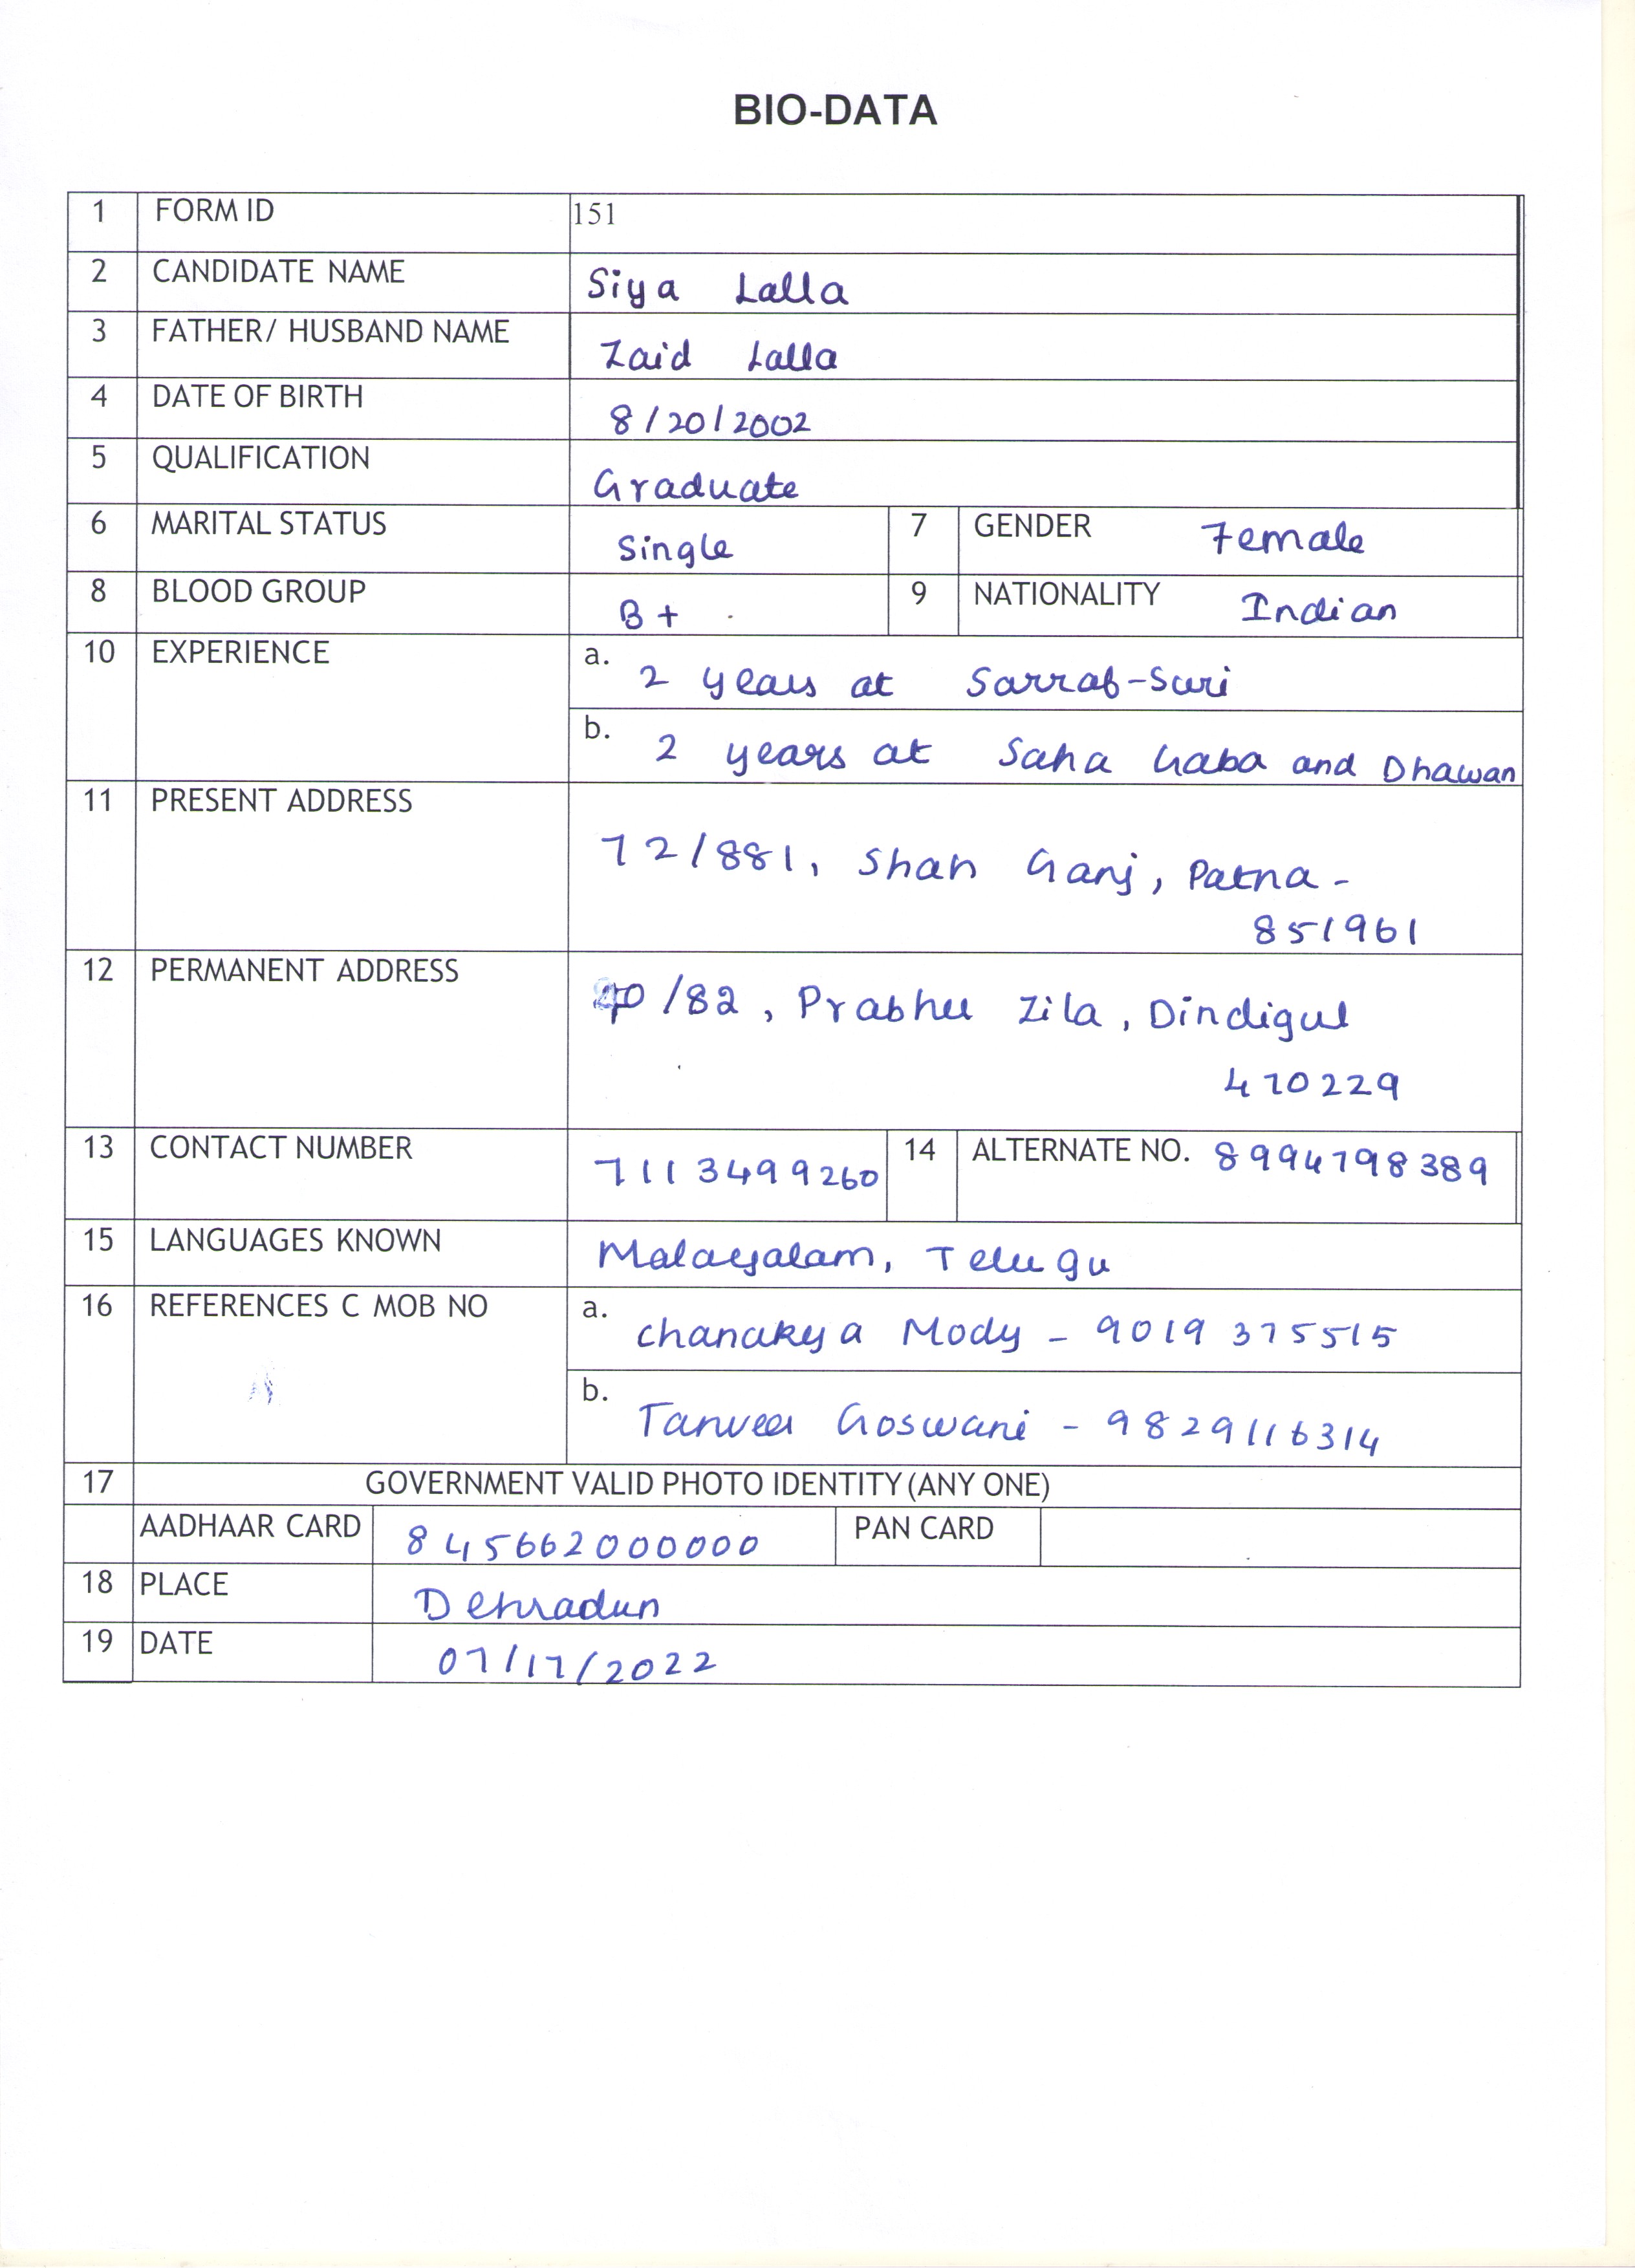 BIO-DATA
1 FORM ID 151
2 CANDIDATE NAME Siya Lalla
3 FATHER/ HUSBAND NAME Zaid Lalla
4 DATE OF BIRTH 8/20/2002
5 QUALIFICATION Graduate
6 MARITAL STATUS Single 7 GENDER Female
8 BLOOD GROUP B+ 9 NATIONALITY Indian
10 EXPERIENCE a. 2 years at Sarraf-Suri
b. 2 years at Saha Gaba and Dhawan
11 PRESENT ADDRESS
72/881, Shah Ganj, Patna -
851961
12 PERMANENT ADDRESS
/82, Prabhu Zila, Dindigul
470229
13 CONTACT NUMBER 7113499260 14 ALTERNATE NO. 8994798389
15 LANGUAGES KNOWN Malayalam, Telugu
16 REFERENCES C MOB NO a. Chanakya Mody - 9019375515
b. Tanveer Goswami - 9829116314
17 GOVERNMENT VALID PHOTO IDENTITY (ANY ONE)
AADHAAR CARD 845662000000 PAN CARD
18 PLACE Dehradun
19 DATE 07/17/2022